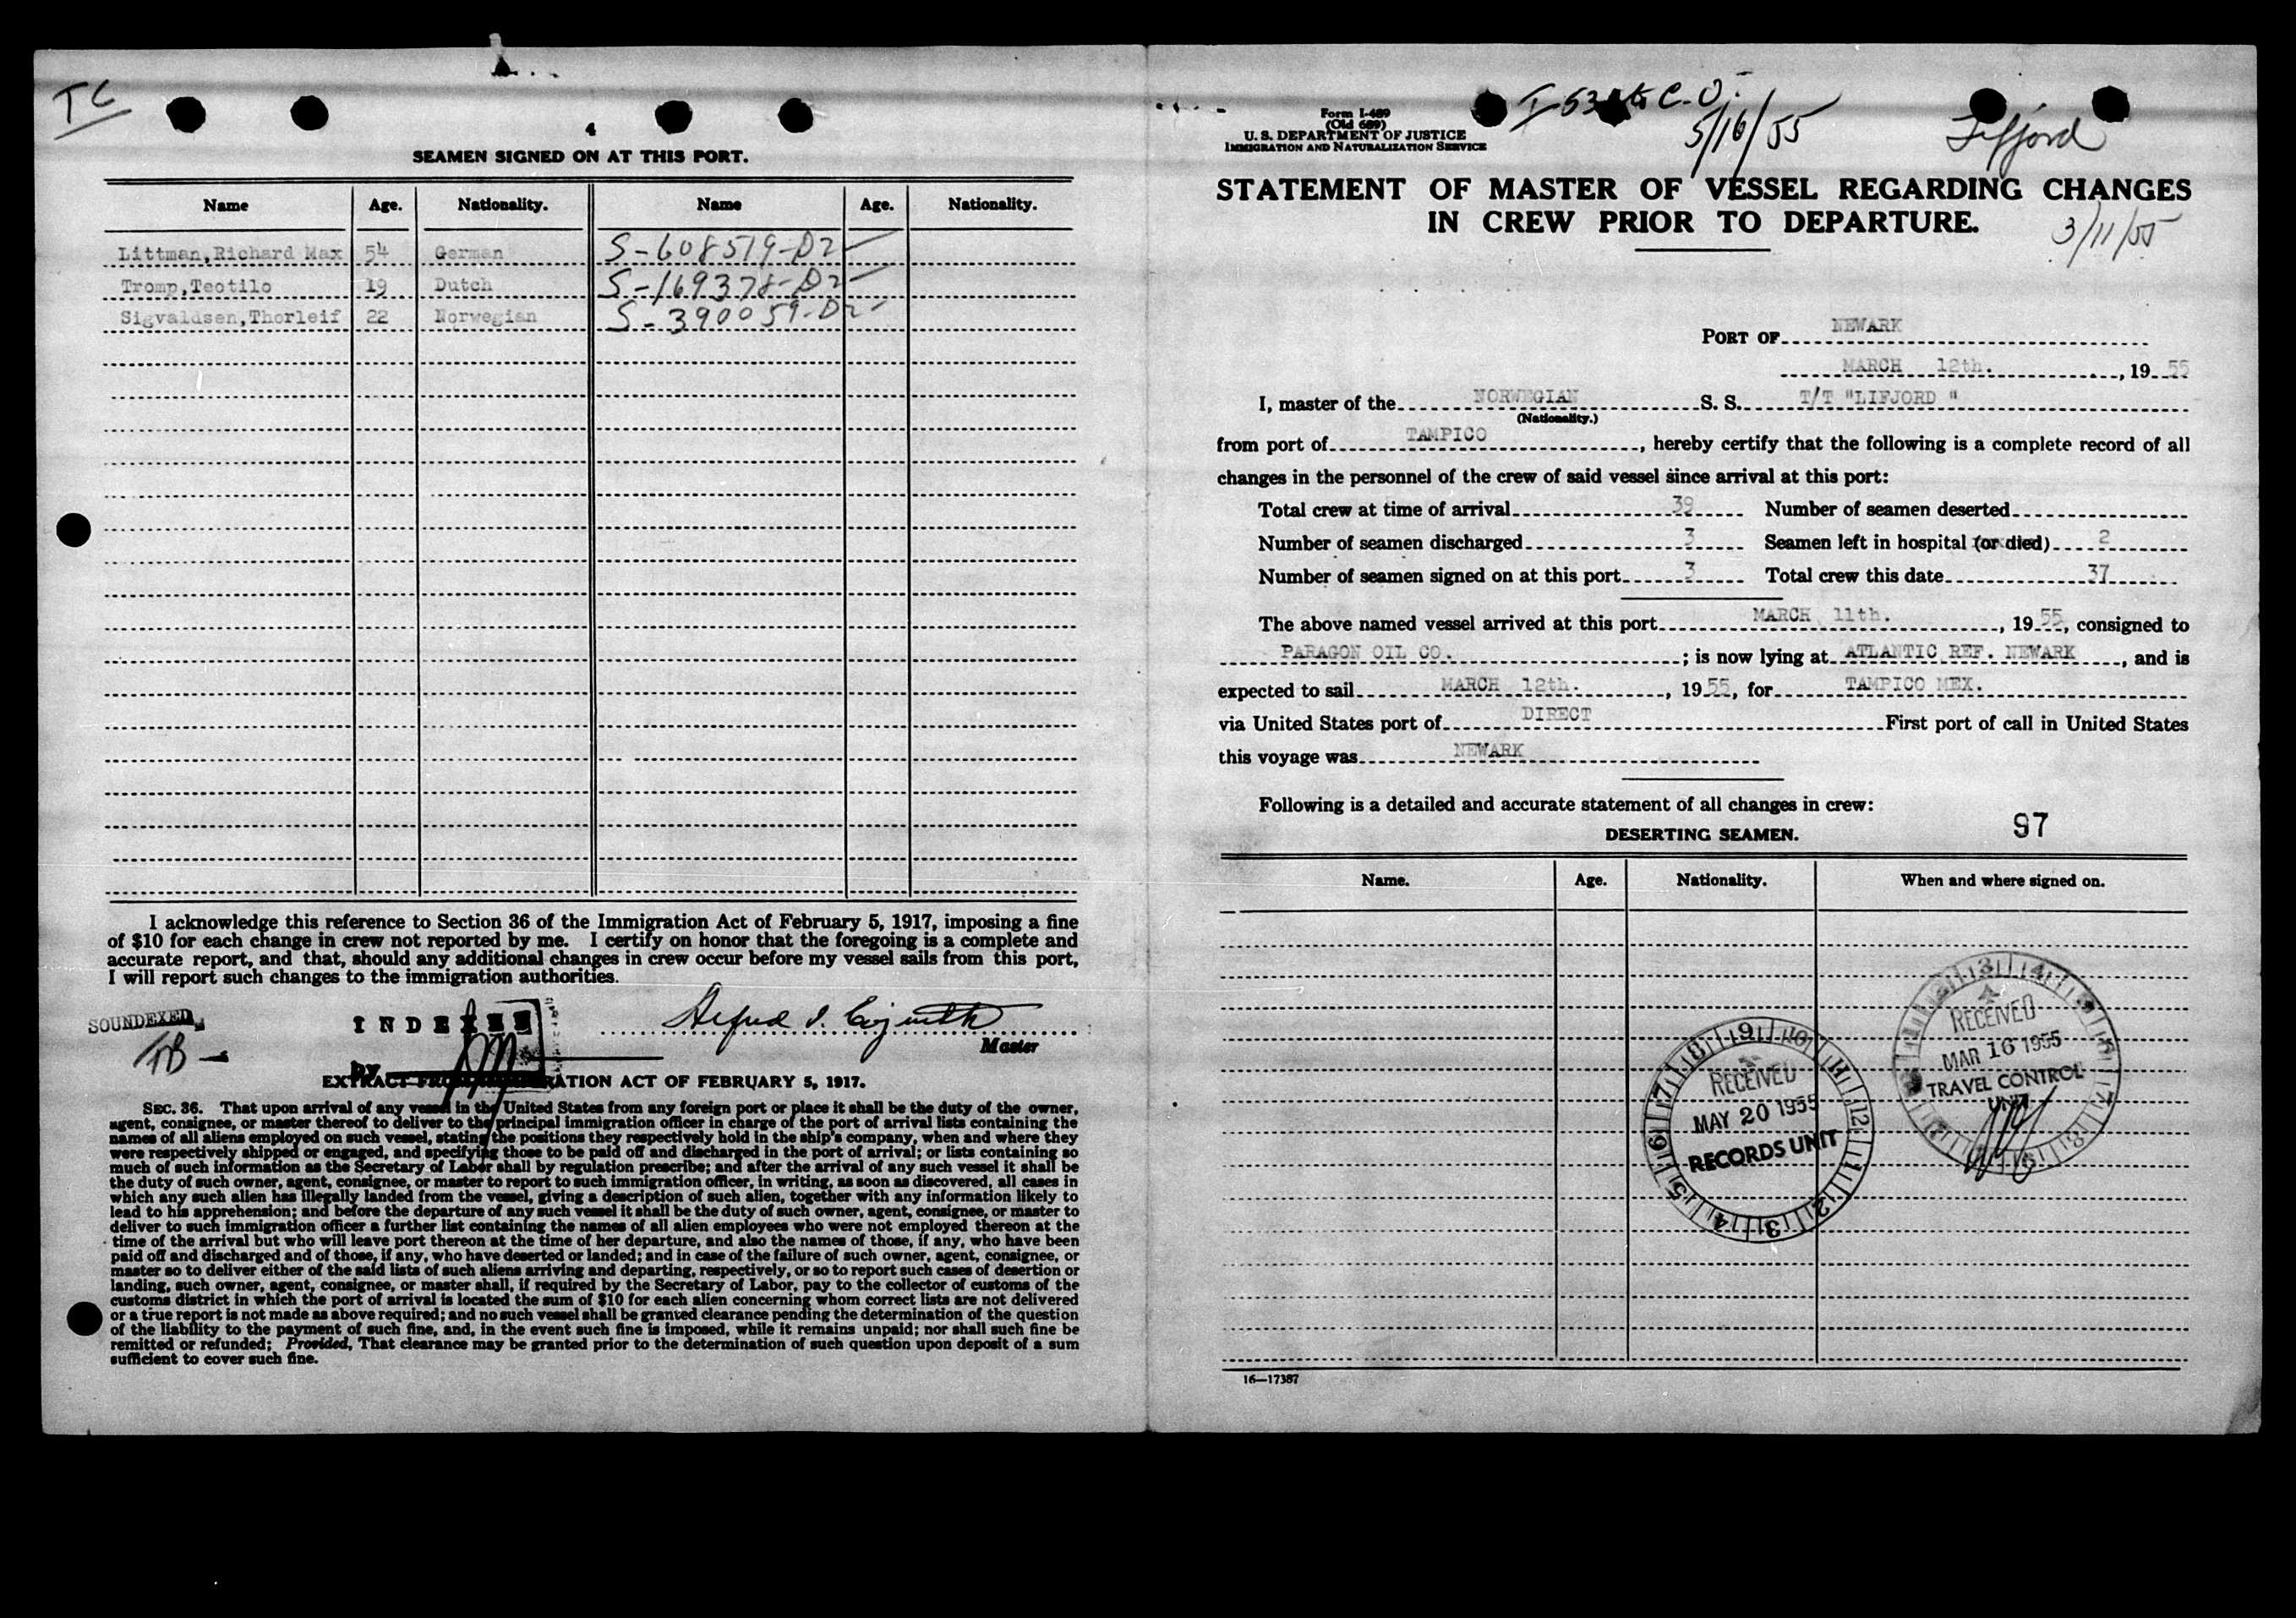 TC
4
SEAMEN SIGNED ON AT THIS PORT.
Name Age. Nationality. Name Age. Nationality.
Littman,Richard Max 54 German S-608519-D2
Tromp,Teotilo 19 Dutch S-169378-D2
Sigvaldsen,Thorleif 22 Norwegian S-390059-D2
I acknowledge this reference to Section 36 of the Immigration Act of February 5, 1917, imposing a fine
of $10 for each change in crew not reported by me. I certify on honor that the foregoing is a complete and
accurate report, and that, should any additional changes in crew occur before my vessel sails from this port,
I will report such changes to the immigration authorities.
SOUNDEXED
TB
INDEXED
BY
Alfred
Master
EXTRACT FROM IMMIGRATION ACT OF FEBRUARY 5, 1917.
SEC. 36. That upon arrival of any vessel in the United States from any foreign port or place it shall be the duty of the owner,
agent, consignee, or master thereof to deliver to the principal immigration officer in charge of the port of arrival lists containing the
names of all aliens employed on such vessel, stating the positions they respectively hold in the ship's company, when and where they
were respectively shipped or engaged, and specifying those to be paid off and discharged in the port of arrival; or lists containing so
much of such information as the Secretary of Labor shall by regulation prescribe; and after the arrival of any such vessel it shall be
the duty of such owner, agent, consignee, or master to report to such immigration officer, in writing, as soon as discovered, all cases in
which any such alien has illegally landed from the vessel, giving a description of such alien, together with any information likely to
lead to his apprehension; and before the departure of any such vessel it shall be the duty of such owner, agent, consignee, or master to
deliver to such immigration officer a further list containing the names of all alien employees who were not employed thereon at the
time of the arrival but who will leave port thereon at the time of her departure, and also the names of those, if any, who have been
paid off and discharged and of those, if any, who have deserted or landed; and in case of the failure of such owner, agent, consignee, or
master so to deliver either of the said lists of such aliens arriving and departing, respectively, or so to report such cases of desertion or
landing, such owner, agent, consignee, or master shall, if required by the Secretary of Labor, pay to the collector of customs of the
customs district in which the port of arrival is located the sum of $10 for each alien concerning whom correct lists are not delivered
or a true report is not made as above required; and no such vessel shall be granted clearance pending the determination of the question
of the liability to the payment of such fine, and, in the event such fine is imposed, while it remains unpaid; nor shall such fine be
remitted or refunded; Provided, That clearance may be granted prior to the determination of such question upon deposit of a sum
sufficient to cover such fine.
Form I-489
(Old 689)
U. S. DEPARTMENT OF JUSTICE
IMMIGRATION AND NATURALIZATION SERVICE
C.O.
5/16/55
Lifjord
STATEMENT OF MASTER OF VESSEL REGARDING CHANGES
IN CREW PRIOR TO DEPARTURE.
3/11/55
PORT OF NEWARK
MARCH 12th. , 19 55
I, master of the NORWEGIAN S. S. T/T "LIFJORD "
(Nationality.)
from port of TAMPICO , hereby certify that the following is a complete record of all
changes in the personnel of the crew of said vessel since arrival at this port:
Total crew at time of arrival 39 Number of seamen deserted
Number of seamen discharged 3 Seamen left in hospital (or died) 2
Number of seamen signed on at this port 3 Total crew this date 37
The above named vessel arrived at this port MARCH 11th. , 19 55, consigned to
PARAGON OIL CO. ; is now lying at ATLANTIC REF. NEWARK , and is
expected to sail MARCH 12th. , 19 55, for TAMPICO MEX.
via United States port of DIRECT First port of call in United States
this voyage was NEWARK
Following is a detailed and accurate statement of all changes in crew:
DESERTING SEAMEN. 97
Name. Age. Nationality. When and where signed on.
RECEIVED
MAR 16 1955
TRAVEL CONTROL
UNIT
RECEIVED
MAY 20 1955
RECORDS UNIT
16—17387